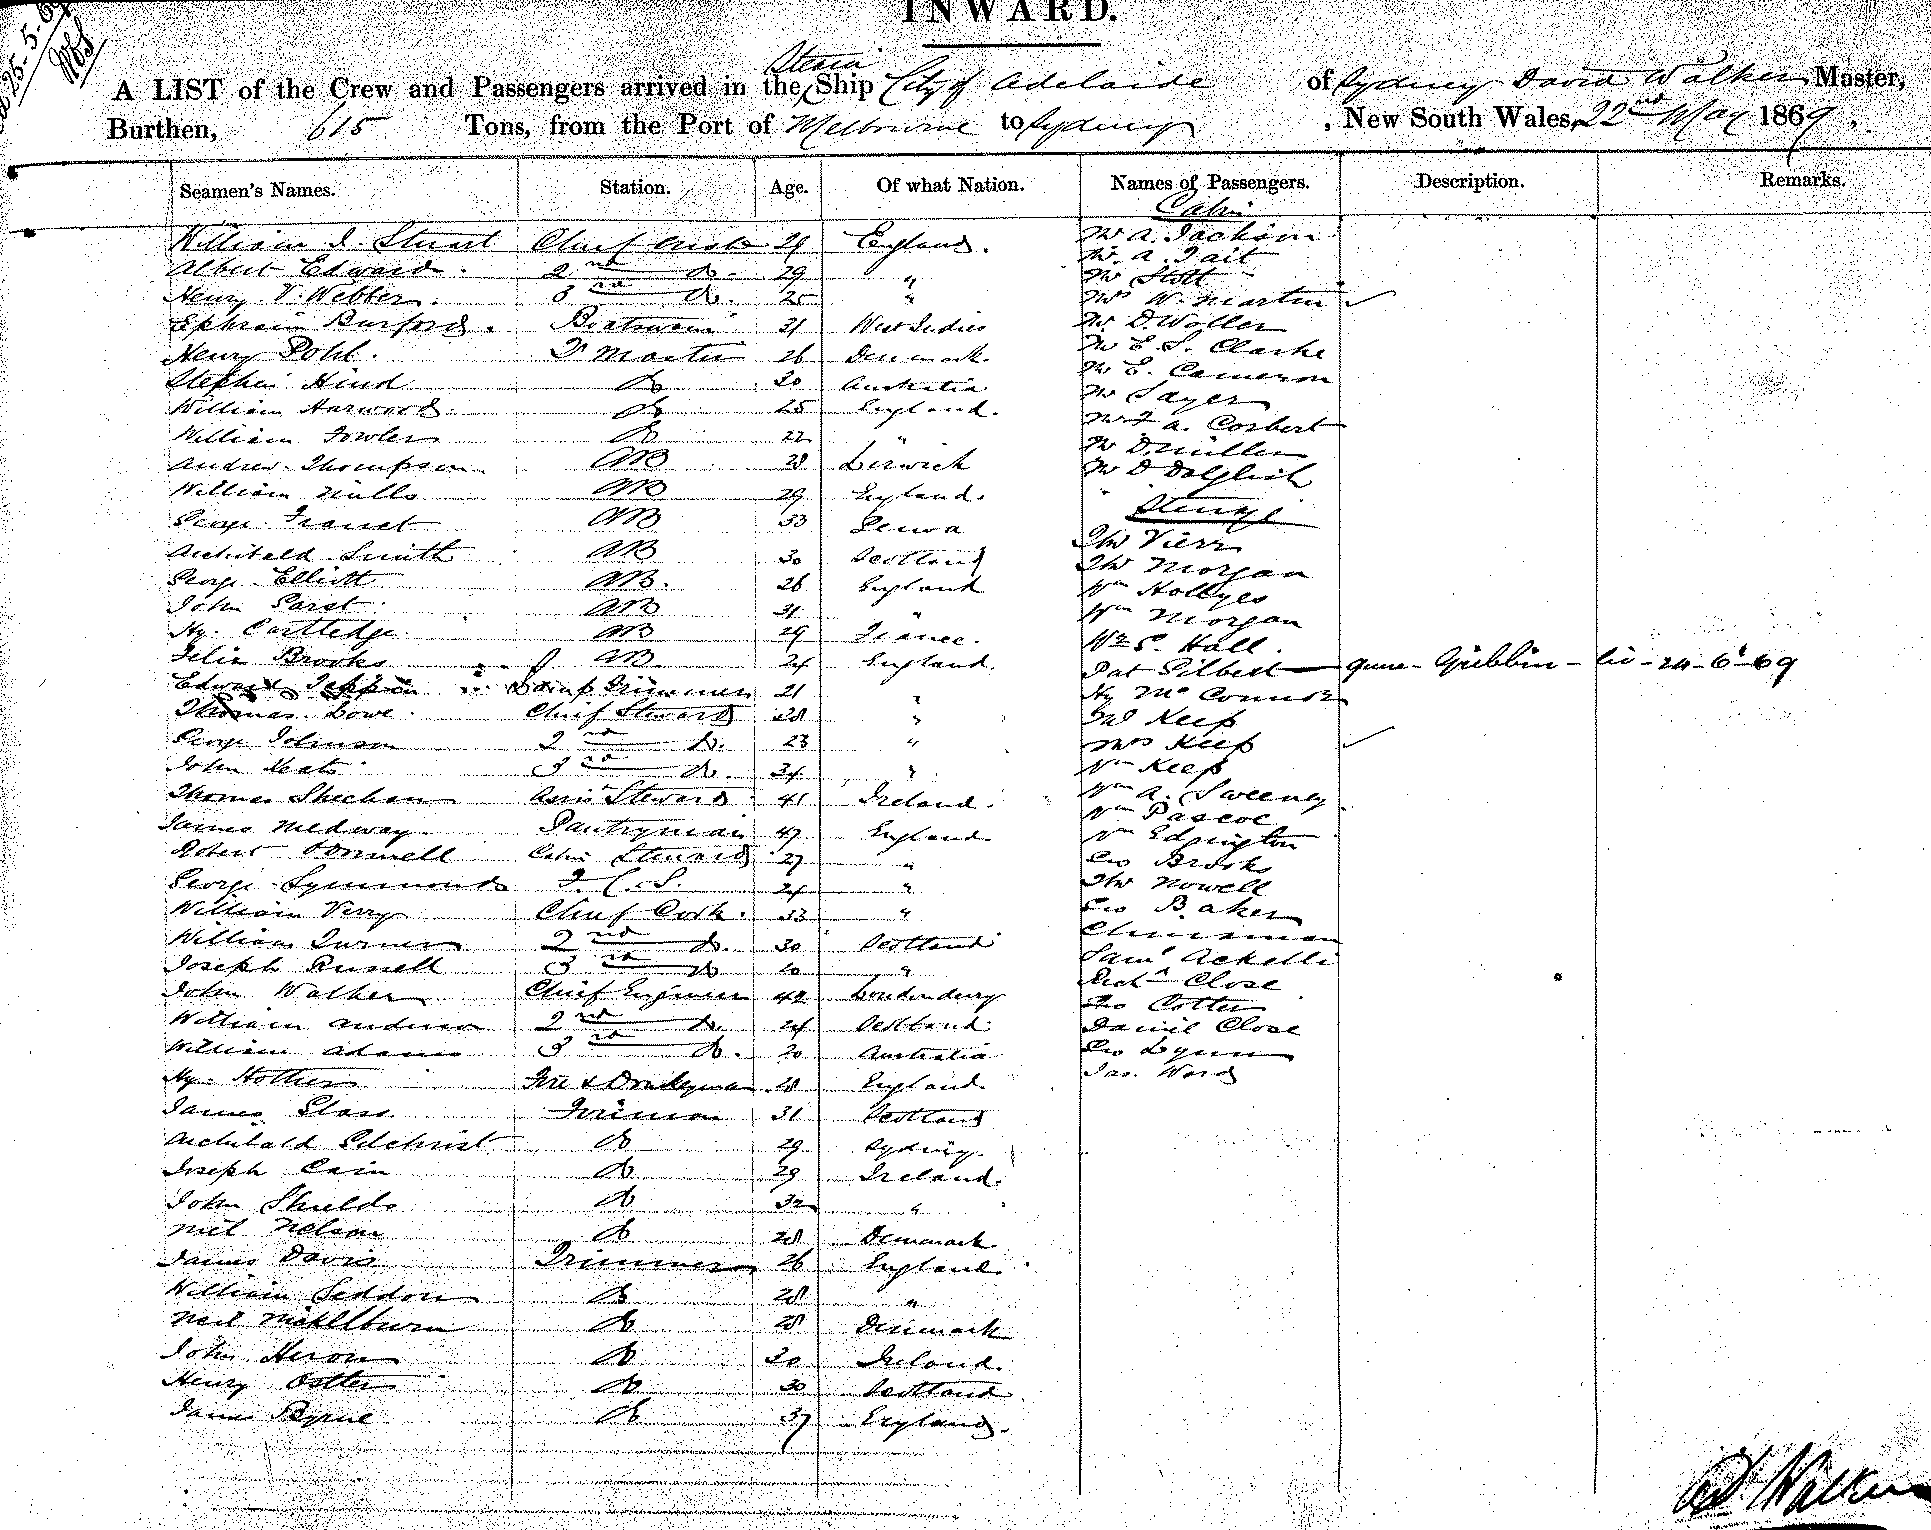 INWARD.
25-5-69
A LIST of the Crew and Passengers arrived in the Steam Ship City of Adelaide of Sydney David Walker Master,
Burthen, 615 Tons, from the Port of Melbourne to Sydney, New South Wales, 22nd May 1869.
Seamen's Names. Station. Age. Of what Nation. Names of Passengers. Description. Remarks.
Cabin
William J. Stuart Chief Mate 29 England. Mr A. Jackson
Albert Edward. 2nd Do. 29 " Mr. A. Tait
Henry V. Webber. 3rd Do. 25 " Mr Stott
Mrs W. Martin
Ephraim Burford. Boatswain 31 West Indies Mr. D. Woller
Henry Pohl. Qr Master 26 Denmark. Mr E. S. Clarke
Stephen Hind Do 30 Australia Mr E. Cameron
William Harwood Do 25 England. Mr Sayer
William Fowler Do 22 " Mr F A. Corbert
Andrew Thompson AB 28 Lerwick Mr D. Müller
William Mills AB 29 England. Mr D Dalglish
George AB 33 Steerage
Archibald Smith AB 30 Scotland Thos Vierr
George Elliott AB. 26 England Thos Morgan
John AB 31 " Wm Hollyes
Hy. Cartledge AB 29 France. Wm Morgan
Felix Brooks AB 24 England Wm S. Hall.
Pat Gilbert quer- Gubbin - lic - 24-6-69
Edward Trimmer 21 " Hy McConnor
Thomas Lowe. Chief Steward 28 " Keep
George Johnson 2nd Do. 23 " Mrs Keep
John 3rd Do. 34 " Wm Keep
Thomas Sheehan Assist Steward 41 Ireland. Wm A. Sweeney
James Medway Pantryman 47 England Wm Pascoe
Wm Edgington
Robert Donnell Cabin Steward 27 " Geo Brooks
George Symmonds F. C. S. 24 " Thos Nowell
William Verry Chief Cook. 33 " Geo Baker
William Turner 2nd Do. 30 Scotland Chinaman
Joseph Russell 3rd Do 20 " Saml Ackelli
John Walker Chief Engineer 42 Londonderry Richd Close
William Anderson 2nd Do. 24 Scotland. Cotter
Daniel Close
William Adams 3rd Do. 20 Australia Geo Lynn
Hy. Fire & Donkeyman 28 England Jas. Ward
James Glass Fireman 31 Scotland
Archibald Gilchrist Do 29 Sydney.
Joseph Cain Do 29 Ireland.
John Shields Do 32 "
Niel Nelson Do 28 Denmark
James Davis Trimmer 26 England.
William Seddon Do 28 "
Neil Do 28 Denmark
John Heron Do 30 Ireland.
Henry Do 30 Scotland
James Byrne Do 37 England.
D. Walker